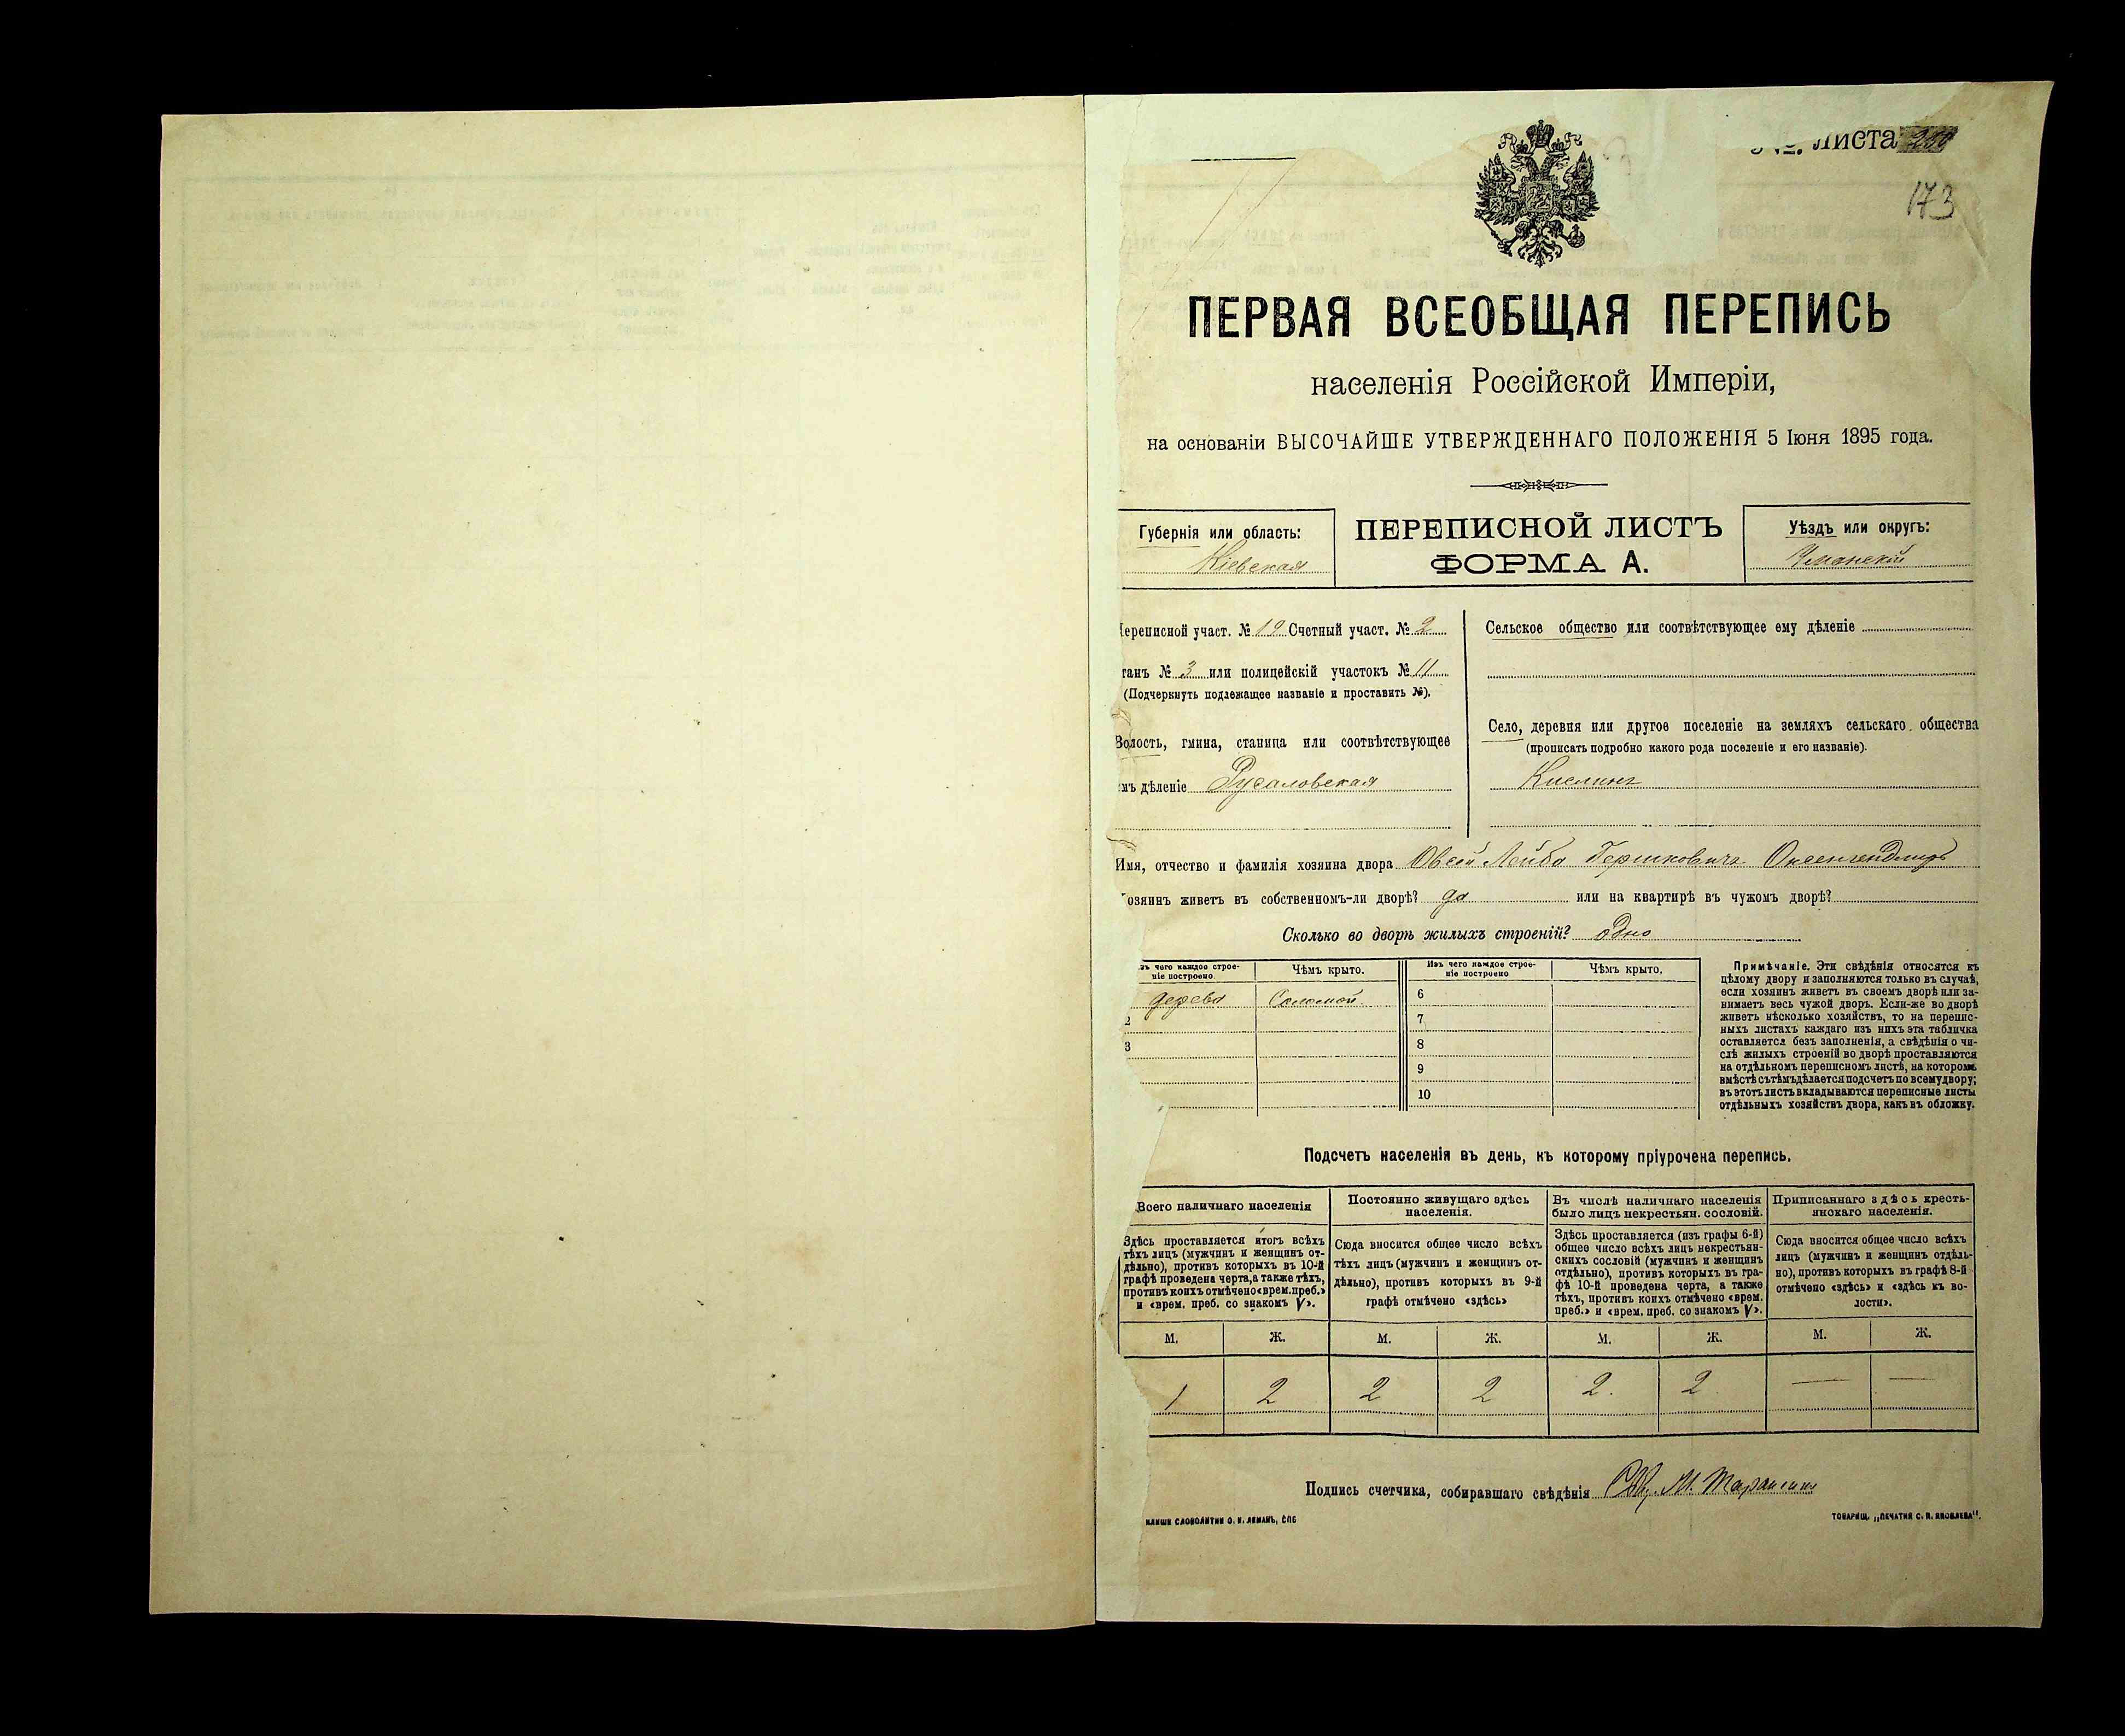 № Листа 200
173
ПЕРВАЯ ВСЕОБЩАЯ ПЕРЕПИСЬ
населенія Россійской Имперіи,
на основаніи ВЫСОЧАЙШЕ УТВЕРЖДЕННАГО ПОЛОЖЕНІЯ 5 Іюня 1895 года.
Губернія или область:
Кіевская
ПЕРЕПИСНОЙ ЛИСТЪ
ФОРМА А.
Уѣздъ или округъ:
Уманскій
ереписной участ. № 19 Счетный участ. № 2
танъ № 3 или полицейскій участокъ № 11
(Подчеркнуть подлежащее названіе и проставить №).
Волость, гмина, станица или соотвѣтствующее
мъ дѣленіе Русаловская
Сельское общество или соотвѣтствующее ему дѣленіе
Село, деревня или другое поселеніе на земляхъ сельскаго общества
(прописать подробно какого рода поселеніе и его названіе).
Кислинъ
Имя, отчество и фамилія хозяина двора Овсей Лейба Гершковичъ Оксенгендлеръ
озяинъ живетъ въ собственномъ-ли дворѣ? да или на квартирѣ въ чужомъ дворѣ?
Сколько во дворѣ жилыхъ строеній? одно
зъ чего каждое строе-
ніе построено.
Чѣмъ крыто.
Изъ чего каждое строе-
ніе построено
Чѣмъ крыто.
дерева Соломой 6
2 7
3 8
9
10
Примѣчаніе. Эти свѣдѣнія относятся къ
цѣлому двору и заполняются только въ случаѣ,
если хозяинъ живетъ въ своемъ дворѣ или за-
нимаетъ весь чужой дворъ. Если-же во дворѣ
живетъ нѣсколько хозяйствъ, то на перепис-
ныхъ листахъ каждаго изъ нихъ эта табличка
оставляется безъ заполненія, а свѣдѣнія о чи-
слѣ жилыхъ строеній во дворѣ проставляются
на отдѣльномъ переписномъ листѣ, на которомъ
вмѣстѣ съ тѣмъ дѣлается подсчетъ по всему двору;
въ этотъ листъ вкладываются переписные листы
отдѣльныхъ хозяйствъ двора, какъ въ обложку.
Подсчетъ населенія въ день, къ которому пріурочена перепись.
Всего наличнаго населенія
Здѣсь проставляется итогъ всѣхъ
тѣхъ лицъ (мужчинъ и женщинъ от-
дѣльно), противъ которыхъ въ 10-й
графѣ проведена черта, а также тѣхъ,
противъ коихъ отмѣчено «врем. преб.»
и «врем. преб. со знакомъ V».
Постоянно живущаго здѣсь
населенія.
Сюда вносится общее число всѣхъ
тѣхъ лицъ (мужчинъ и женщинъ от-
дѣльно), противъ которыхъ въ 9-й
графѣ отмѣчено «здѣсь»
Въ числѣ наличнаго населенія
было лицъ некрестьян. сословій.
Здѣсь проставляется (изъ графы 6-й)
общее число всѣхъ лицъ некрестьян-
скихъ сословій (мужчинъ и женщинъ
отдѣльно), противъ которыхъ въ гра-
фѣ 10-й проведена черта, а также
тѣхъ, противъ коихъ отмѣчено «врем.
преб.» и «врем. преб. со знакомъ V».
Приписаннаго здѣсь кресть-
янскаго населенія.
Сюда вносится общее число всѣхъ
лицъ (мужчинъ и женщинъ отдѣль-
но), противъ которыхъ въ графѣ 8-й
отмѣчено «здѣсь» и «здѣсь къ во-
лости».
М. Ж. М. Ж. М. Ж. М. Ж.
1 2 2 2 2. 2 — —
Подпись счетчика, собиравшаго свѣдѣнія М.
КЛИШЕ СЛОВОЛИТНИ О. И. ЛЕМАНЪ, СПБ
ТОВАРИЩ. „ПЕЧАТНЯ С. П. ЯКОВЛЕВА".